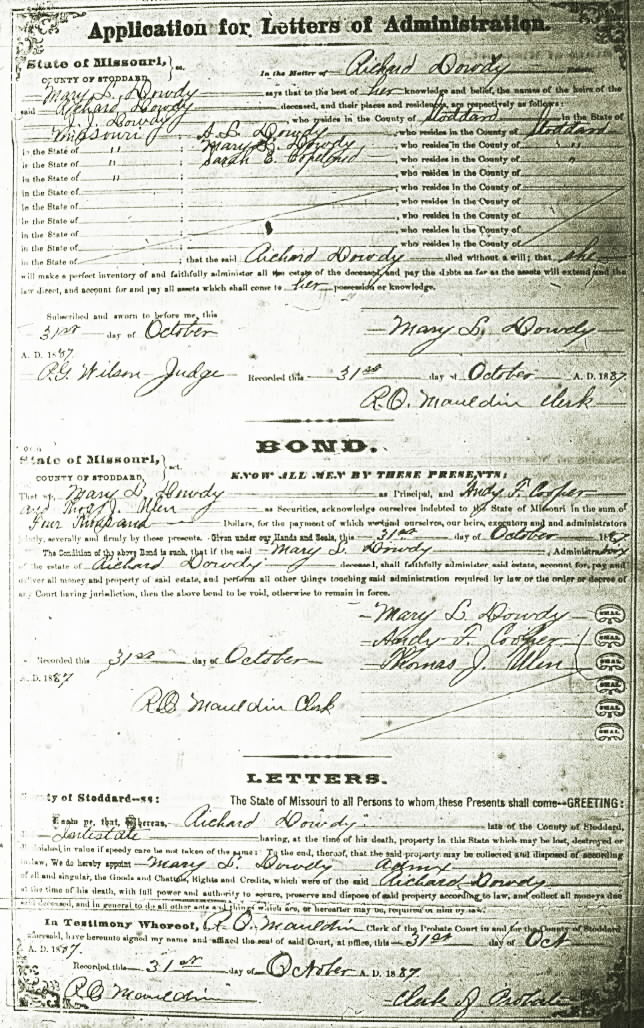 Application for Letters of Administration.
State of Missouri,
COUNTY OF STODDARD, } ss.
In the Matter of Richard Dowdy
Mary L. Dowdy says that to the best of her knowledge and belief, the names of the heirs of the
said Richard Dowdy deceased, and their places and residence, are respectively as follows:
Dowdy , who resides in the County of Stoddard in the State of
Missouri A. L. Dowdy , who resides in the County of Stoddard
in the State of " Mary Dowdy , who resides in the County of "
in the State of " Sarah E. Copeland , who resides in the County of "
in the State of " , who resides in the County of
in the State of , who resides in the County of
in the State of , who resides in the County of
in the State of , who resides in the County of
in the State of , who resides in the County of
in the State of ; that the said Richard Dowdy died without a will; that she
will make a perfect inventory of and faithfully administer all the estate of the deceased, and pay the debts as far as the assets will extend and the
law direct, and account for and pay all assets which shall come to her possession or knowledge.
Subscribed and sworn to before me, this
31st day of October
A. D. 1887.
Mary L. Dowdy
P.G. Wilson Judge
Recorded this 31st day of October A. D. 1887
R.O. Mauldin Clerk
BOND.
State of Missouri,
COUNTY OF STODDARD, } sct.
KNOW ALL MEN BY THESE PRESENTS:
That we, Mary L. Dowdy as Principal, and Andy F. Cooper
and Thos J. Ulen as Securities, acknowledge ourselves indebted to the State of Missouri in the sum of
Four Thousand Dollars, for the payment of which we bind ourselves, our heirs, executors and administrators
jointly, severally and firmly by these presents. Given under our Hands and Seals, this 31st day of October 1887
The Condition of the above Bond is such, that if the said Mary L. Dowdy , Administratrix
of the estate of Richard Dowdy deceased, shall faithfully administer said estate, account for, pay and
deliver all money and property of said estate, and perform all other things touching said administration required by law or the order or decree of
any Court having jurisdiction, then the above bond to be void, otherwise to remain in force.
Mary L. Dowdy SEAL
Andy F. Cooper SEAL
Thomas J. Ulen SEAL
SEAL
SEAL
SEAL
Recorded this 31st day of October
A. D. 1887
R.O. Mauldin Clerk
LETTERS.
County of Stoddard--ss:
The State of Missouri to all Persons to whom these Presents shall come--GREETING:
Know ye, that, Whereas, Richard Dowdy late of the County of Stoddard,
Intestate having, at the time of his death, property in this State which may be lost, destroyed or
diminished in value if speedy care be not taken of the same: To the end, thereof, that the said property may be collected and disposed of according
to law, We do hereby appoint Mary L. Dowdy Admx
of all and singular, the Goods and Chattels, Rights and Credits, which were of the said Richard Dowdy
at the time of his death, with full power and authority to secure, preserve and dispose of said property according to law, and collect all moneys due
said deceased, and in general to do all other acts and things which are, or hereafter may be, required of him by law.
In Testimony Whereof, R. O. Mauldin Clerk of the Probate Court in and for the County of Stoddard
aforesaid, have hereunto signed my name and affixed the seal of said Court, at office, this 31st day of Oct
A. D. 1887.
Recorded this 31st day of October A. D. 1887.
R O Mauldin Clerk of Probate